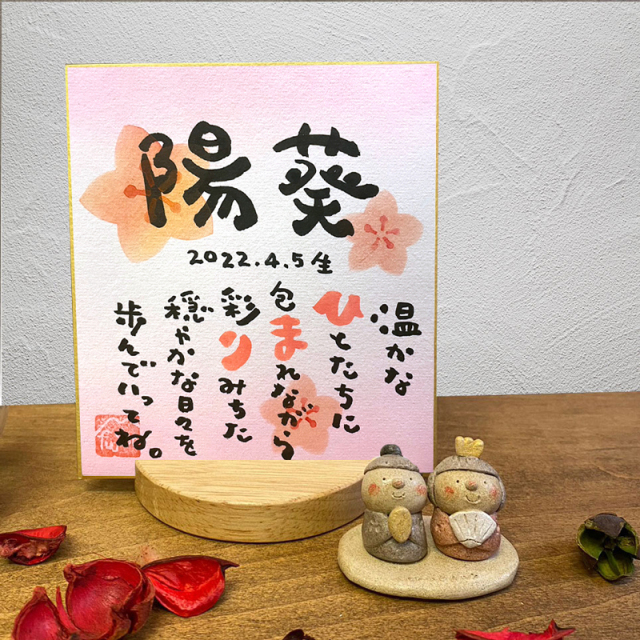 陽葵
2022.4.5生
温かな
ひとたちに
包まれながら
彩りみちた
穏やかな日々を
歩んでいってね。